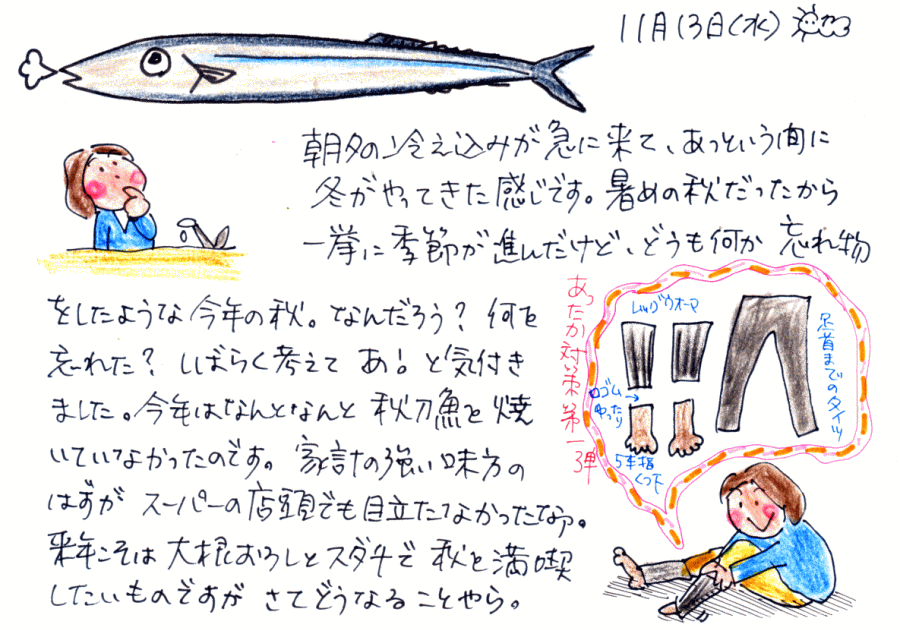 11月13日(水)
朝夕の冷え込みが急に来て、あっという間に
冬がやってきた感じです。暑めの秋だったから
一挙に季節が進んだけど、どうも何か忘れ物
をしたような今年の秋。なんだろう?何を
忘れた?しばらく考えてあ!と気付き
ました。今年はなんとなんと秋刀魚を焼
いていなかったのです。家計の強い味方の
はずがスーパーの店頭でも目立たなかったなァ。
来年こそは大根おろしとスダチで秋を満喫
したいものですがさてどうなることやら。
あったか対策第一弾
レッグウオーマ
足首までのタイツ
口ゴム
ゆったり
5本指
くつ下